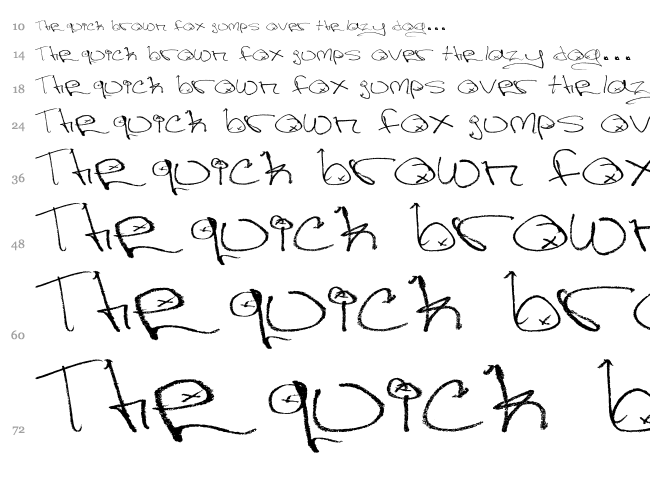 10 The quick brown fox jumps over the lazy dog...
14 The quick brown fox jumps over the lazy dog...
18 The quick brown fox jumps over the laz
24 The quick brown fox jumps ov
36 The quick brown fox
48 The quick brown
60 The quick bro
72 The quick b